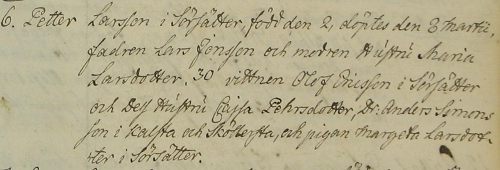 6. Petter Larsson i Sörsätter, född den 2, döptes den 3 martii,
fadren Lars Jonsson och modren Hustru Maria
Larsdotter, 30 vittnen Olof Ericsson i Sörsätter
och dess Hustru Cajsa Pehrsdotter, Dr. Anders Simons
son i Kalsta och Sköllersta, och pigan Margeta Larsdot-
ter i Sörsätter.